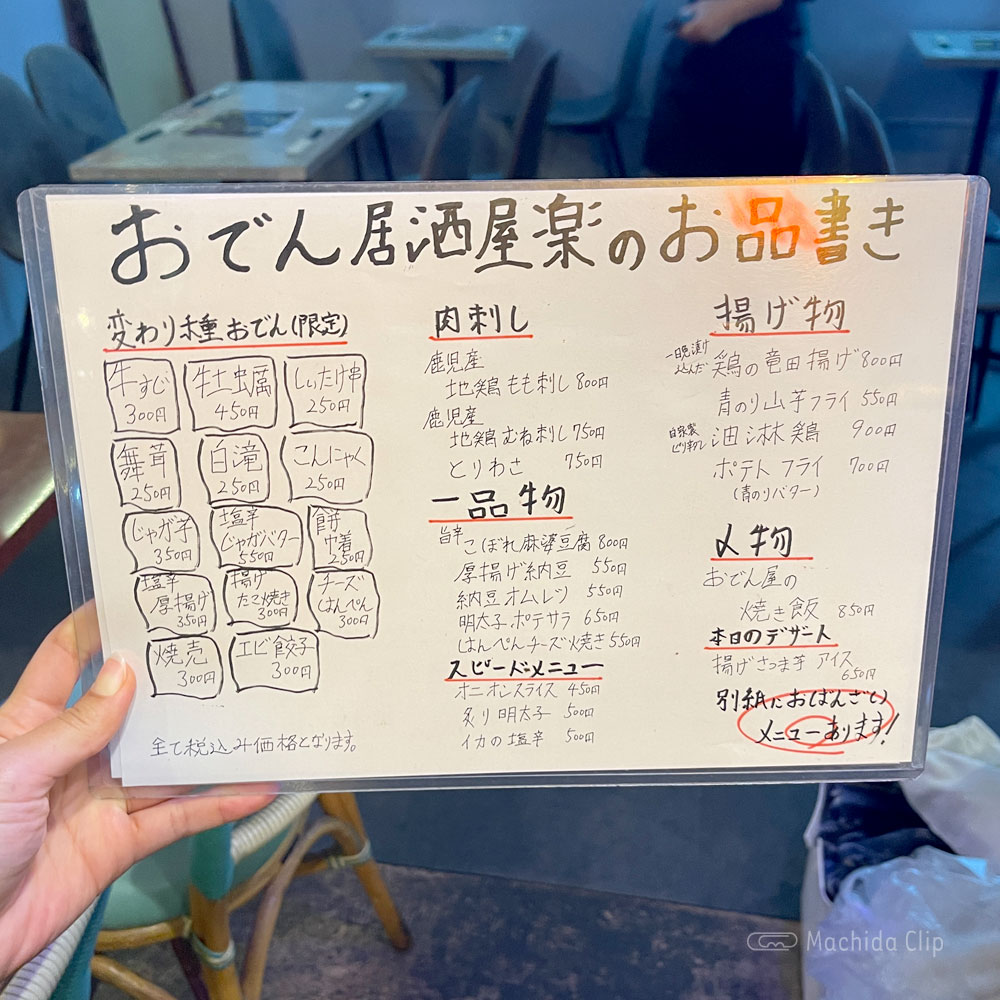 おでん居酒屋楽のお品書き
変わり種おでん(限定)
牛すじ
300円
牡蠣
450円
しいたけ串
250円
舞茸
250円
白滝
250円
こんにゃく
250円
じゃが芋
350円
塩辛
じゃがバター
550円
餅
巾着
250円
塩辛
厚揚げ
350円
揚げ
たこ焼き
300円
チーズ
はんぺん
300円
焼売
300円
エビ餃子
300円
全て税込み価格となります。
肉刺し
鹿児産
地鶏もも刺し 800円
鹿児産
地鶏むね刺し 750円
とりわさ 750円
一品物
旨辛 こぼれ麻婆豆腐 800円
厚揚げ納豆 550円
納豆オムレツ 550円
明太子ポテサラ 650円
はんぺんチーズ焼き 550円
スピードメニュー
オニオンスライス 450円
炙り明太子 500円
イカの塩辛 500円
揚げ物
一晩漬け
込んだ 鶏の竜田揚げ 800円
青のり山芋フライ 550円
自家製
ピリ辛ダレ 油淋鶏 900円
ポテトフライ 700円
(青のりバター)
〆物
おでん屋の
焼き飯 850円
本日のデザート
揚げさつま芋 アイス
650円
別紙におばんざい
メニューあります!
Machida Clip